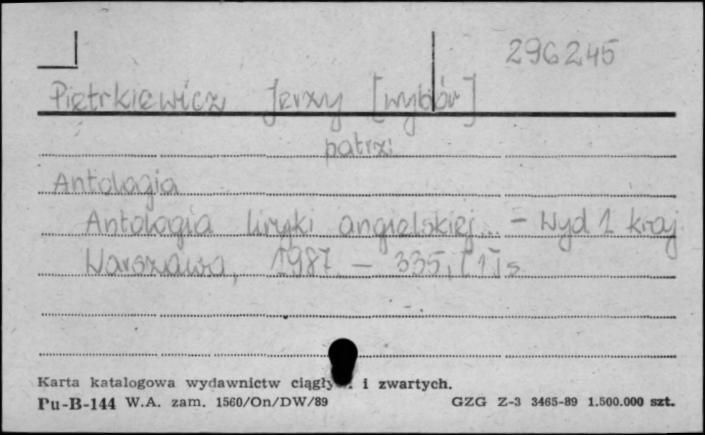 296245
Piętrkiewicz Jerzy [wybór]
patrz:
Antologia
Antologia liryki angielskiej... - Wyd 1 kraj
Warszawa, 1987. - 335, [1] s
Karta katalogowa wydawnictw i zwartych.
Pu-B-144 W.A. zam. 1560/On/DW/89 GZG Z-3 3465-89 1.500.000 szt.